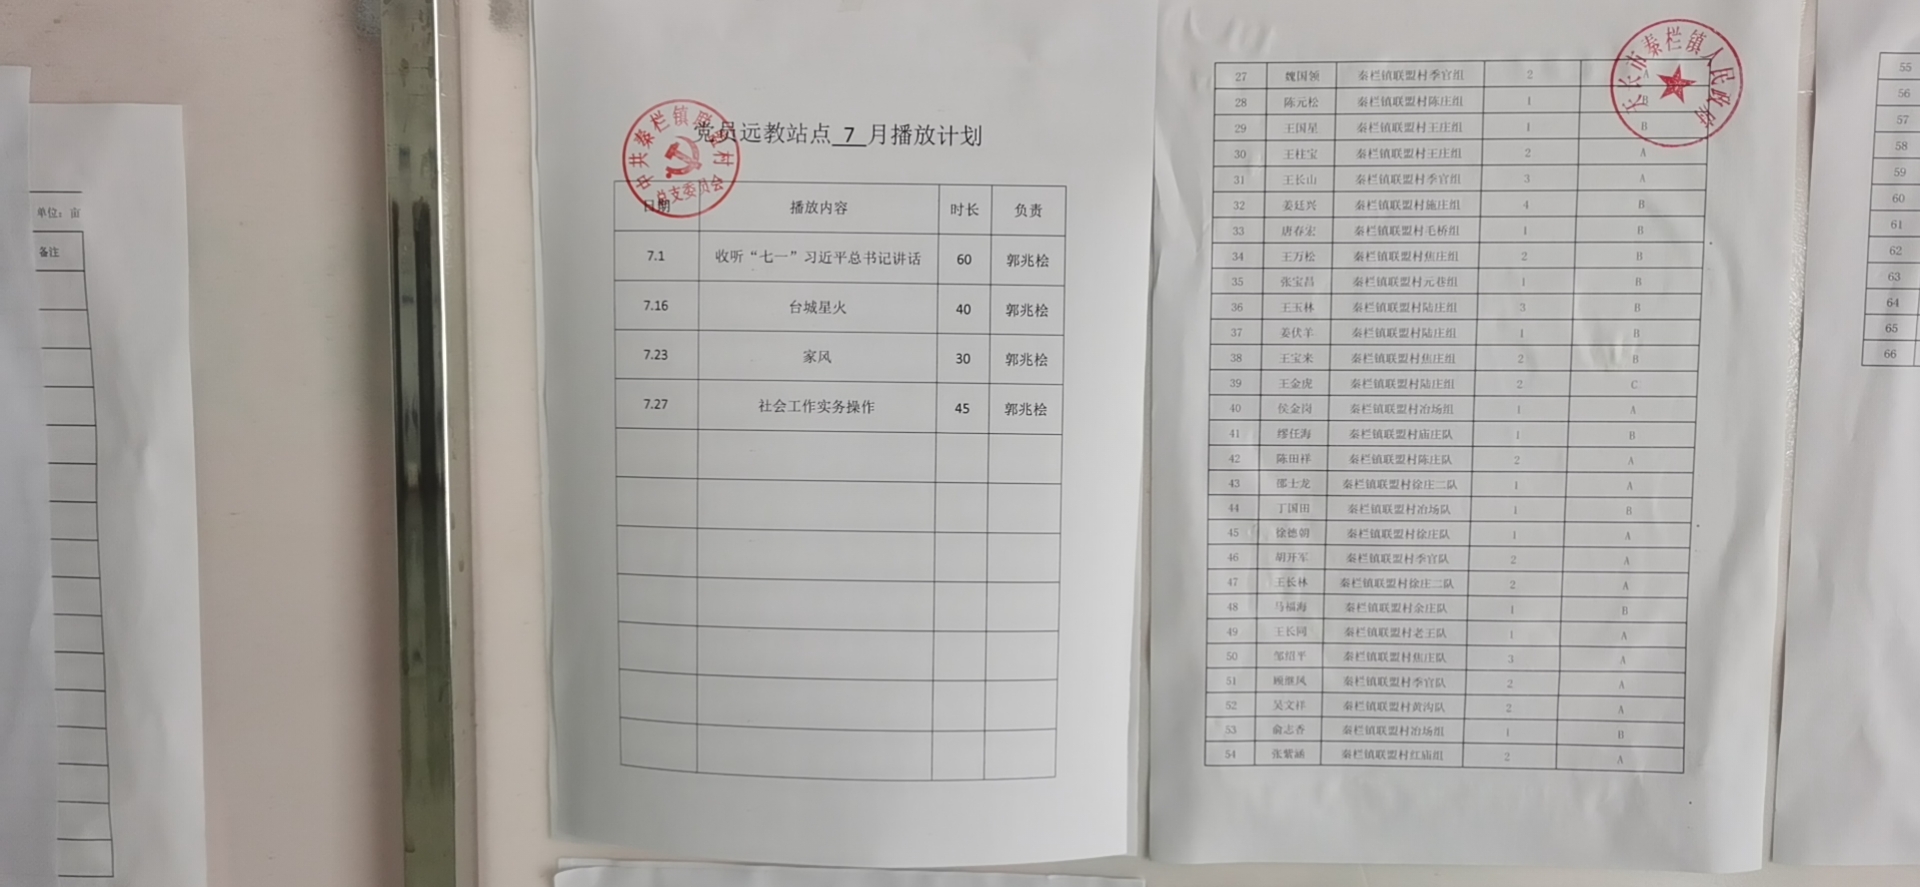 单位：亩
备注
中共秦栏镇联盟村
总支委员会
党员远教站点 7 月播放计划
日期 播放内容 时长 负责
7.1 收听“七一”习近平总书记讲话 60 郭兆桧
7.16 台城星火 40 郭兆桧
7.23 家风 30 郭兆桧
7.27 社会工作实务操作 45 郭兆桧
天长市秦栏镇人民政府
27 魏国领 秦栏镇联盟村季官组 2 A
28 陈元松 秦栏镇联盟村陈庄组 1 B
29 王国星 秦栏镇联盟村王庄组 1 B
30 王柱宝 秦栏镇联盟村王庄组 2 A
31 王长山 秦栏镇联盟村季官组 3 A
32 姜廷兴 秦栏镇联盟村施庄组 4 B
33 唐春宏 秦栏镇联盟村毛桥组 1 B
34 王万松 秦栏镇联盟村焦庄组 2 B
35 张宝昌 秦栏镇联盟村元巷组 1 B
36 王玉林 秦栏镇联盟村陆庄组 3 B
37 姜伏羊 秦栏镇联盟村陆庄组 1 B
38 王宝来 秦栏镇联盟村焦庄组 2 B
39 王金虎 秦栏镇联盟村陆庄组 2 C
40 侯金岗 秦栏镇联盟村冶场组 1 A
41 缪任海 秦栏镇联盟村庙庄队 1 B
42 陈田祥 秦栏镇联盟村陈庄队 2 A
43 邵士龙 秦栏镇联盟村徐庄二队 1 A
44 丁国田 秦栏镇联盟村冶场队 1 B
45 徐德朝 秦栏镇联盟村徐庄队 1 A
46 胡开军 秦栏镇联盟村季官队 2 A
47 王长林 秦栏镇联盟村徐庄二队 2 A
48 马福海 秦栏镇联盟村余庄队 1 B
49 王长同 秦栏镇联盟村老王队 1 A
50 邹绍平 秦栏镇联盟村焦庄队 3 A
51 顾继凤 秦栏镇联盟村季官队 2 A
52 吴文祥 秦栏镇联盟村黄沟队 2 A
53 俞志香 秦栏镇联盟村冶场组 1 B
54 张紫涵 秦栏镇联盟村红庙组 2 A
55
56
57
58
59
60
61
62
63
64
65
66